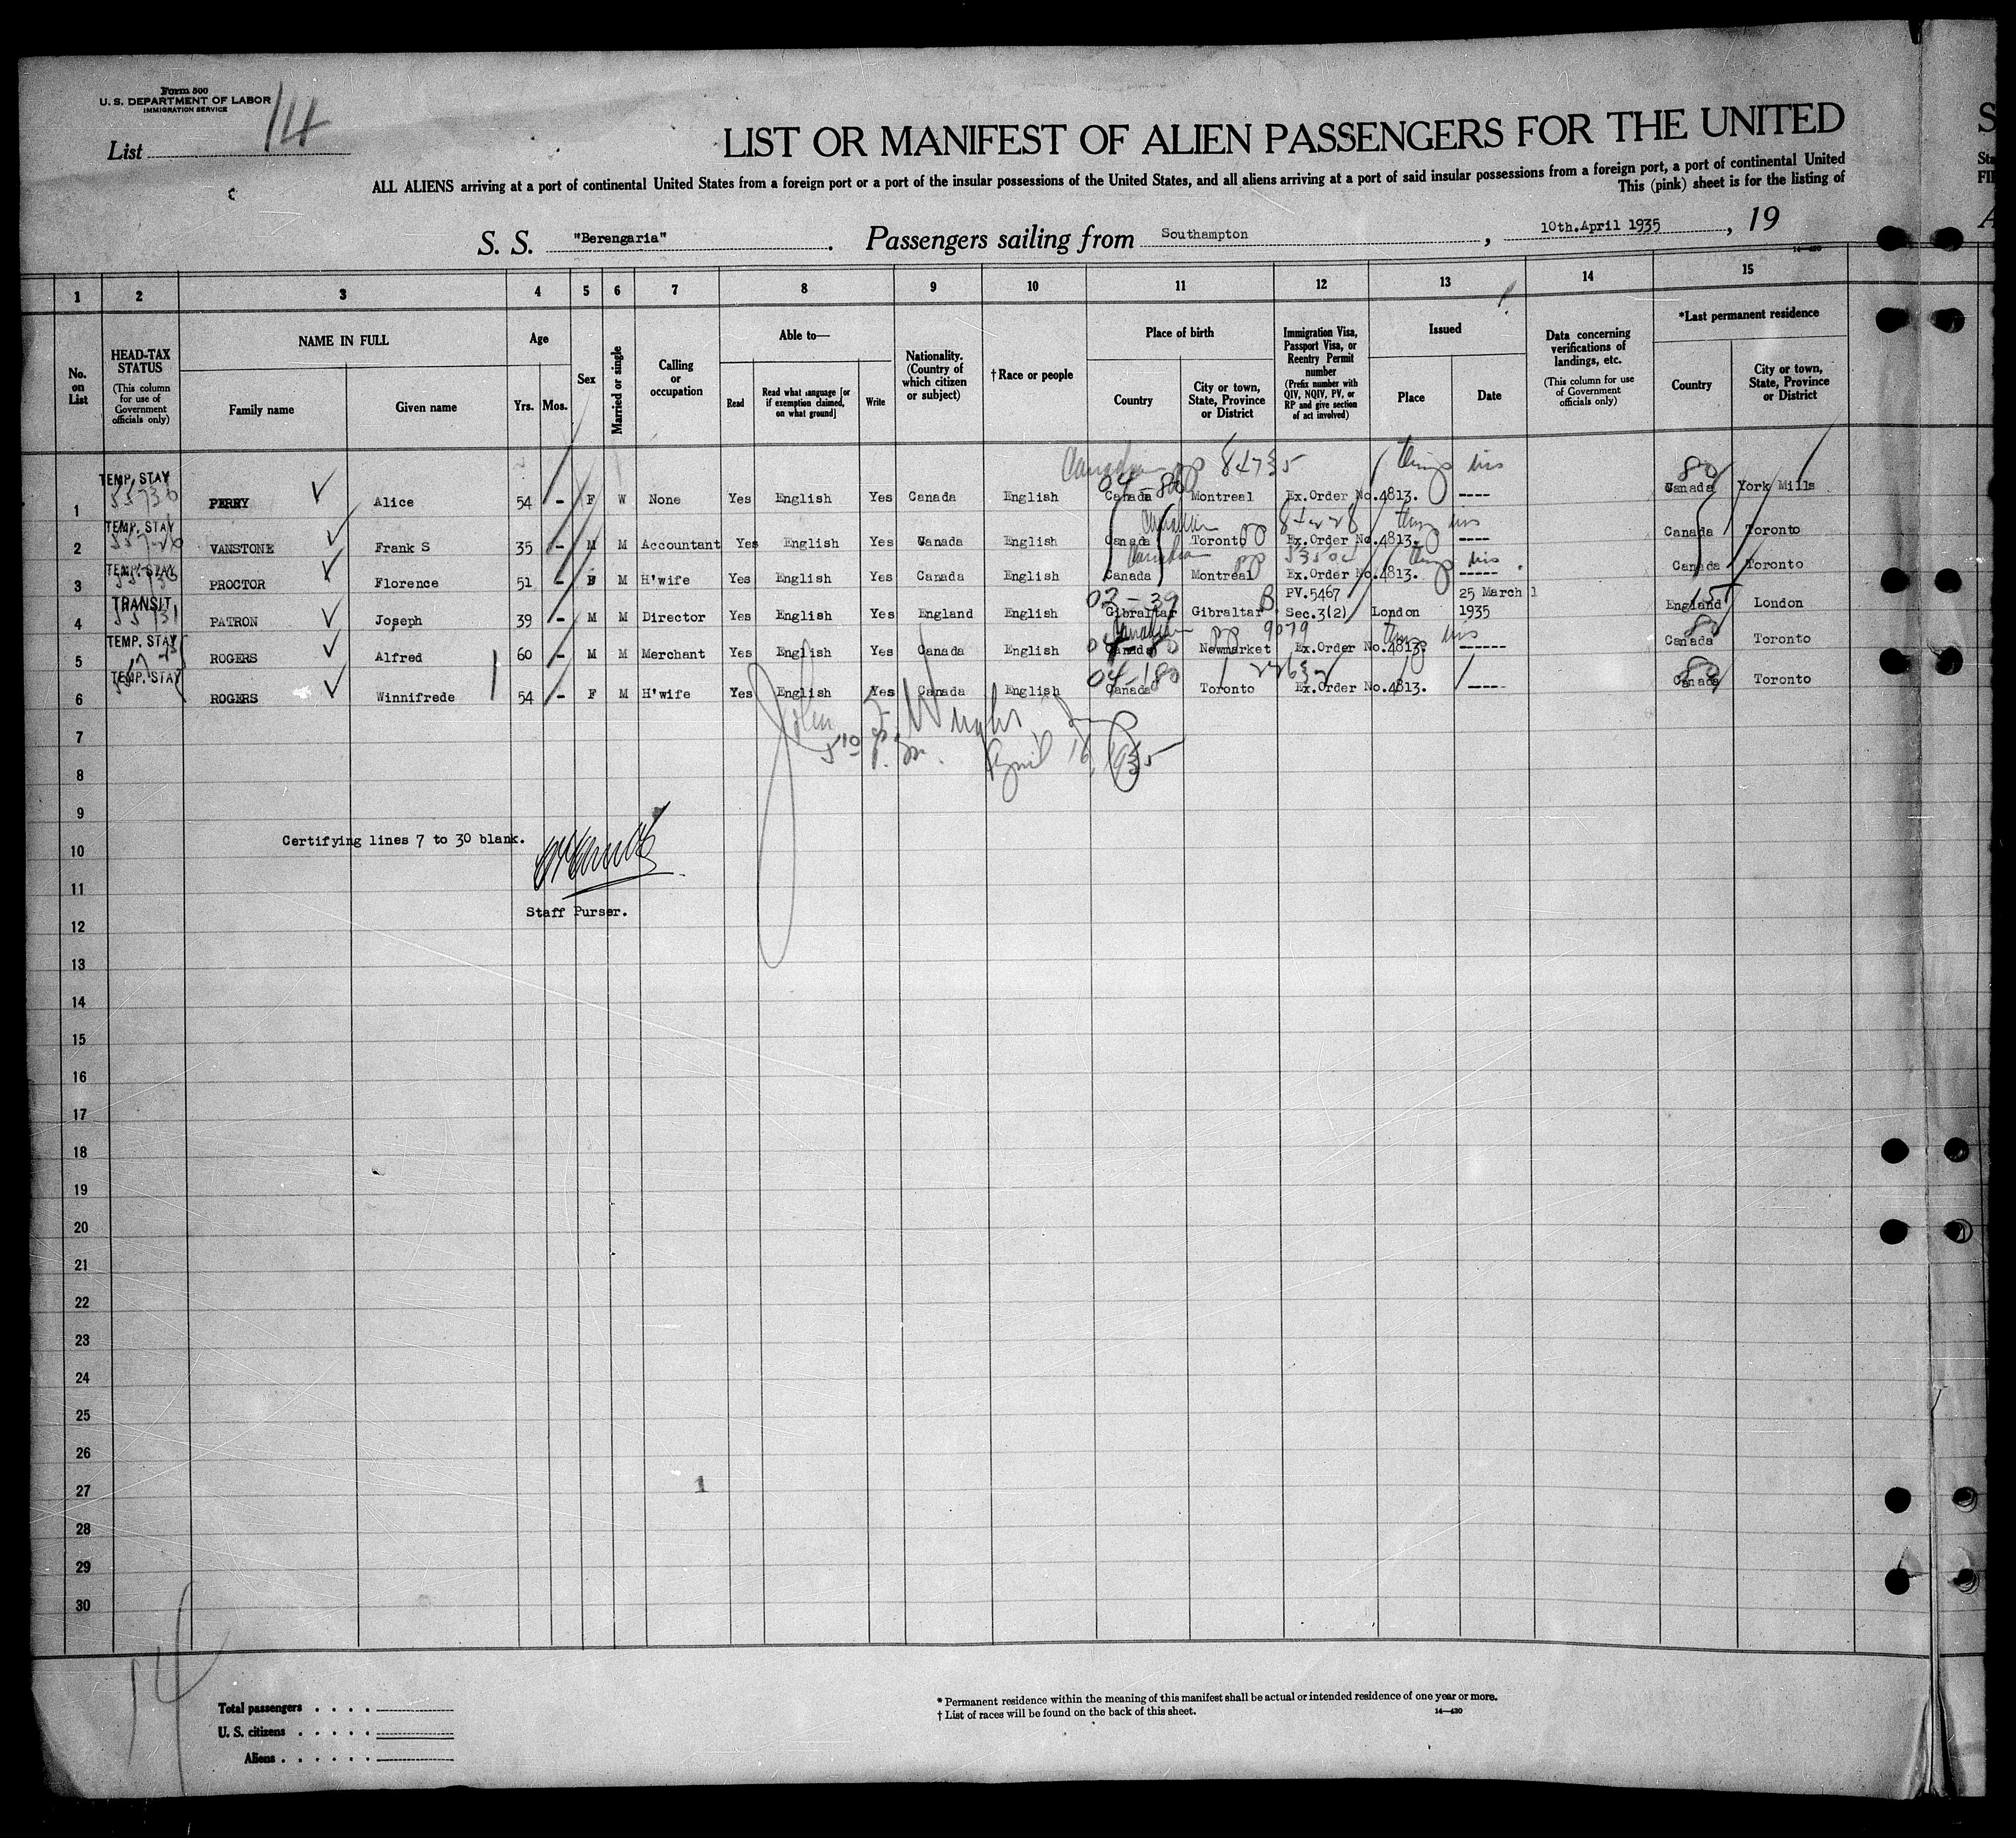 Form 500
U. S. DEPARTMENT OF LABOR
IMMIGRATION SERVICE
List 14
LIST OR MANIFEST OF ALIEN PASSENGERS FOR THE UNITED
ALL ALIENS arriving at a port of continental United States from a foreign port or a port of the insular possessions of the United States, and all aliens arriving at a port of said insular possessions from a foreign port, a port of continental United
This (pink) sheet is for the listing of
S. S. "Berengaria". Passengers sailing from Southampton, 10th.April 1935, 19
14—430
1 2 3 4 5 6 7 8 9 10 11 12 13 14 15
No. on List
HEAD-TAX STATUS (This column for use of Government officials only)
NAME IN FULL
Family name
Given name
Age
Yrs. Mos.
Sex
Married or single
Calling or occupation
Able to—
Read
Read what language [or if exemption claimed, on what ground]
Write
Nationality. (Country of which citizen or subject)
†Race or people
Place of birth
Country
City or town, State, Province or District
Immigration Visa, Passport Visa, or Reentry Permit number (Prefix number with QIV, NQIV, PV, or RP and give section of act involved)
Issued
Place
Date
Data concerning verifications of landings, etc. (This column for use of Government officials only)
*Last permanent residence
Country
City or town, State, Province or District
Canadian pp 84735
04-80 80
1 TEMP. STAY PERRY Alice 54 - F W None Yes English Yes Canada English Canada Montreal Ex.Order No.4813. ---- Canada York Mills
Canadian
2 TEMP. STAY VANSTONE Frank S 35 - M M Accountant Yes English Yes Canada English Canada Toronto Ex.Order No.4813. ---- Canada Toronto
Canadian pp
3 TEMP. STAY PROCTOR Florence 51 - F M H'wife Yes English Yes Canada English Canada Montreal Ex.Order No.4813. ----- Canada Toronto
02-39 B PV.5467 25 March 15
4 TRANSIT PATRON Joseph 39 - M M Director Yes English Yes England English Gibraltar Gibraltar Sec.3(2) London 1935 England London
Canadian pp 9079
5 TEMP. STAY ROGERS Alfred 60 - M M Merchant Yes English Yes Canada English Canada Newmarket Ex.Order No.4813. ------ Canada Toronto
04-180
6 TEMP. STAY ROGERS Winnifrede 54 - F M H'wife Yes English Yes Canada English Canada Toronto Ex.Order No.4813. ----- Canada Toronto
John
7
5 10 P.M. April 16, 1935
8
9
Certifying lines 7 to 30 blank.
10
11
Staff Purser.
12
13
14
15
16
17
18
19
20
21
22
23
24
25
26
27
28
29
30
14
Total passengers . . . .
U. S. citizens . . . . .
Aliens . . . . . .
* Permanent residence within the meaning of this manifest shall be actual or intended residence of one year or more.
† List of races will be found on the back of this sheet.
14—430